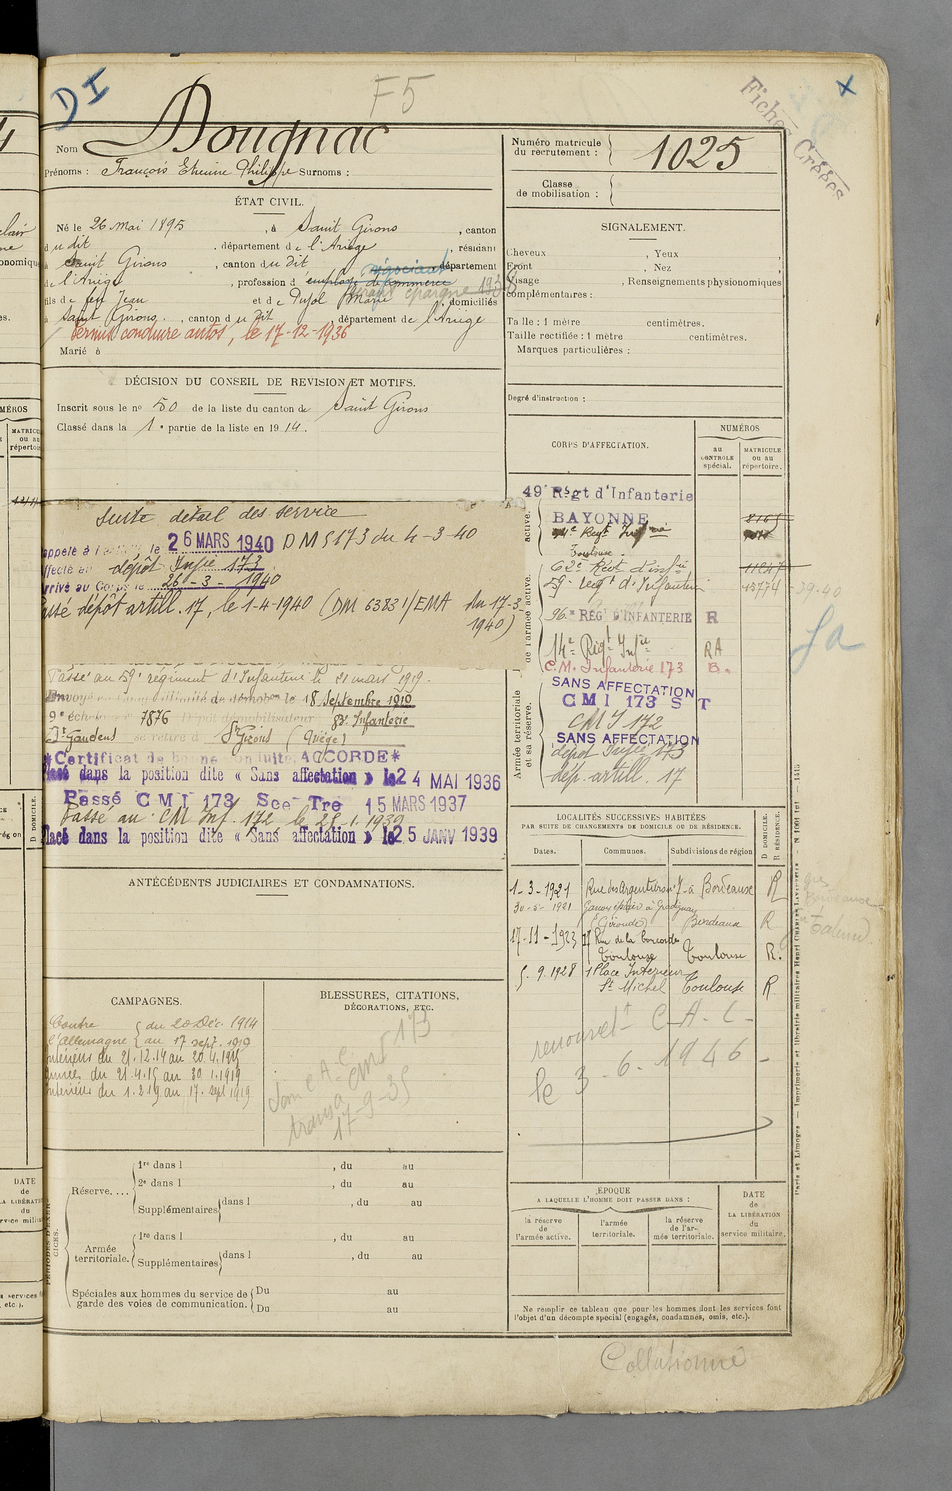 D I
F5
Fiches Créées
Nom Dougnac
Prénoms : François Etienne Philippe Surnoms :
Numéro matricule du recrutement : 1025
Classe de mobilisation :
ÉTAT CIVIL.
Né le 26 mai 1895, à Saint Girons, canton
du dit, département de l'Ariège, résidant
à Saint Girons, canton du dit, département
négociant
de l'Ariège, profession d'employé de commerce
épargne 1938
fils de feu Jean et de Pujol Marie, domiciliés
à Saint Girons, canton du dit, département de l'Ariège
Permis conduire autos, le 17-12-1936
Marié à
SIGNALEMENT.
Cheveux , Yeux
Front , Nez
Visage , Renseignements physionomiques
complémentaires :
Taille : 1 mètre centimètres.
Taille rectifiée : 1 mètre centimètres.
Marques particulières :
Degré d'instruction :
DÉCISION DU CONSEIL DE REVISION ET MOTIFS.
Inscrit sous le no 50 de la liste du canton de Saint Girons
Classé dans la 1e partie de la liste en 1914.
Suite détail des service
appelé à l' le 26 MARS 1940 DM 5173 du 4-3-40
affecté au dépôt Infie 173
arrivé au Corps le 26-3-1940
passé dépôt artill. 17, le 1-4-1940 (DM 6383 1/EMA du 17-3-
1940)
Passé au 59e régiment d'Infanterie le 21 mars 1919.
Envoyé en congé illimité de démob le 18 Septembre 1919
9e échelon 7876 Dépôt démobilisateur 83e Infanterie
St Gaudens se retire à St Girons (Ariège)
*Certificat de bonne conduite ACCORDE*
Placé dans la position dite « Sans affectation » le 24 MAI 1936
Passé CMI 173 Sce Tre 15 MARS 1937
Passé au CM Inf. 172 le
Placé dans la position dite « Sans affectation » le 25 JANV 1939
CORPS D'AFFECTATION.
NUMÉROS
AU CONTROLE spécial.
MATRICULE OU AU répertoire.
active.
49e Régt d'Infanterie
BAYONNE
Toulouse.
de l'armée active.
62e Régt d'Infie
59e reg.t d'Infanterie
96me REGt D'INFANTERIE R
14e Régt Infie RA
C.M. Infanterie 173
Armée territoriale et sa réserve.
SANS AFFECTATION
CMI 173 S T
CMI 172
SANS AFFECTATION
dépot Infie 173
dép. artill. 17
LOCALITÉS SUCCESSIVES HABITÉES
PAR SUITE DE CHANGEMENTS DE DOMICILE OU DE RÉSIDENCE.
Dates. Communes. Subdivisions de région
D DOMICILE. R RÉSIDENCE.
1-3-1921 Bordeaux R
1921 (Gironde) Bordeaux R
17-11-1923 Rue de la Concorde
Toulouse Toulouse R.
5.9.1928 1 Place Intérieure
St Michel Toulouse R
renouvelt C.A.C.
le 3-6-1946
ANTÉCÉDENTS JUDICIAIRES ET CONDAMNATIONS.
CAMPAGNES.
Contre l'Allemagne { du 20 Déc. 1914
au 17 sept. 1919
Intérieur du 21.12.14 au 20.4.1915
Armées du 21.4.15 au 30.1.1919
Intérieur du 1.2.19 au 17. sept 1919
BLESSURES, CITATIONS,
DÉCORATIONS, ETC.
17-9-35
Réserve....
1re dans l , du au
2e dans l , du au
Supplémentaires dans l , du au
Armée territoriale.
1re dans l , du au
Supplémentaires dans l , du au
Spéciales aux hommes du service de garde des voies de communication.
Du au
Du au
ÉPOQUE
A LAQUELLE L'HOMME DOIT PASSER DANS :
la réserve de l'armée active.
l'armée territoriale.
la réserve de l'armée territoriale.
DATE DE LA LIBÉRATION du service militaire.
Ne remplir ce tableau que pour les hommes dont les services font
l'objet d'un décompte spécial (engagés, condamnés, omis, etc.).
Collationné